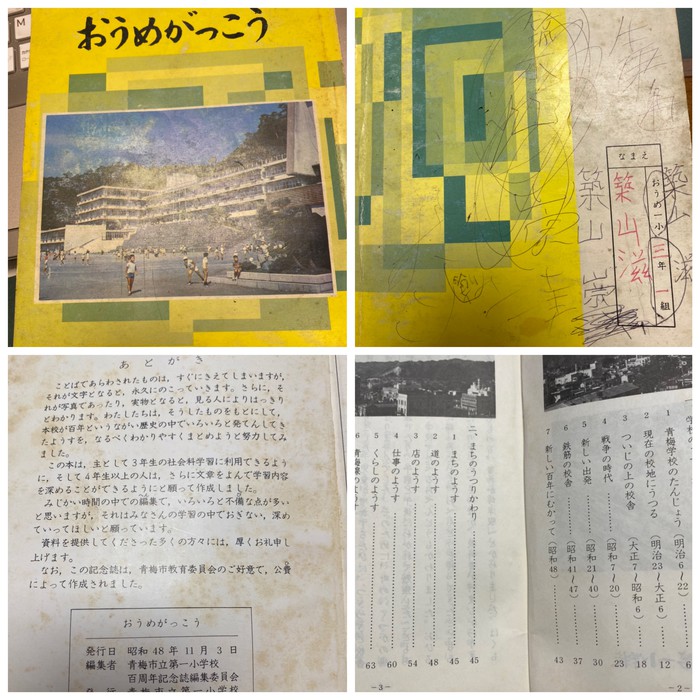 おうめがっこう
なまえ
おうめ一小
三年一組
築山滋
築山
滋
築山
崇
あとがき
ことばであらわされたものは、すぐにきえてしまいますが、
それが文字となると、永久にのこっていきます。さらに、そ
れが写真であったり、実物となると、見る人によりはっきり
とわかります。わたしたちは、そうしたものをもとにして、
本校が百年というながい歴史の中でいろいろと発てんしてき
たようすを、なるべくわかりやすくまとめようと努力してみ
ました。
この本は、主として3年生の社会科学習に利用できるよう
に、そして4年生以上の人は、さらに文章をよんで学習内容
を深めることができるようにと願って作成しました。
みじかい時間の中での編集で、いろいろと不備な点が多い
と思いますが、それはみなさんの学習の中でおぎない、深め
ていってほしいと願っています。
資料を提供してくださった多くの方々には、厚くお礼申し
上げます。
なお、この記念誌は、青梅市教育委員会のご好意で、公費
によって作成されました。
おうめがっこう
発行日 昭和48年11月3日
編集者 青梅市立第一小学校
百周年記念誌編集委員会
1 青梅学校のたんじょう(明治6〜22)…… 6
2 現在の校地にうつる(明治23〜大正6)…… 12
3 ついじの上の校舎(大正7〜昭和6)…… 18
4 戦争の時代……(昭和7〜20)…… 23
5 新しい出発……(昭和21〜40)…… 30
6 鉄筋の校舎……(昭和41〜47)…… 37
7 新しい百年にむかって(昭和48)…… 43
－2－
二、まちのうつりかわり…… 45
1 まちのようす…… 45
2 道のようす…… 48
3 店のようす…… 54
4 仕事のようす…… 60
5 くらしのようす…… 63
－3－